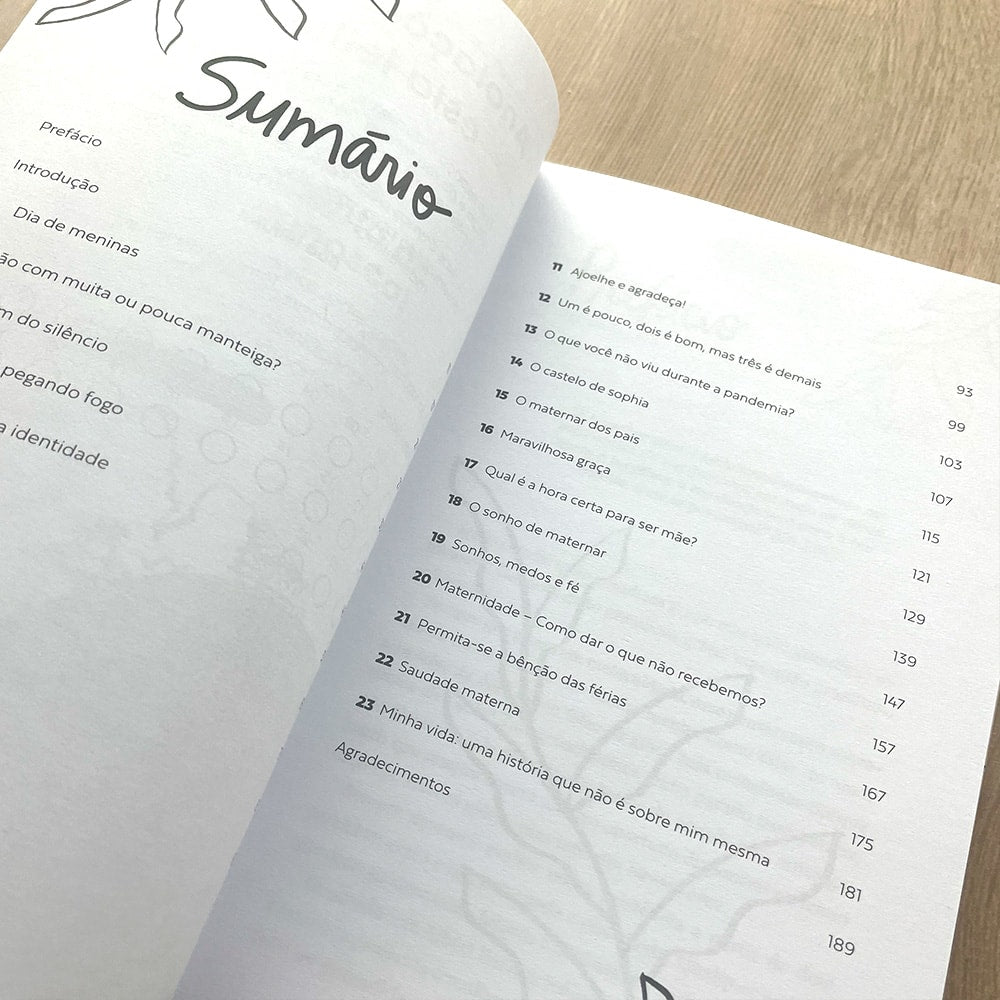 Sumário
Prefácio
Introdução
Dia de meninas
ão com muita ou pouca manteiga?
m do silêncio
pegando fogo
a identidade
11 Ajoelhe e agradeça! 93
12 Um é pouco, dois é bom, mas três é demais 99
13 O que você não viu durante a pandemia? 103
14 O castelo de sophia 107
15 O maternar dos pais 115
16 Maravilhosa graça 121
17 Qual é a hora certa para ser mãe? 129
18 O sonho de maternar 139
19 Sonhos, medos e fé 147
20 Maternidade – Como dar o que não recebemos? 157
21 Permita-se a bênção das férias 167
22 Saudade materna 175
23 Minha vida: uma história que não é sobre mim mesma 181
Agradecimentos 189